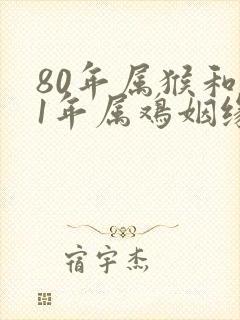 80年属猴和
1年属鸡姻缘
宿宇杰